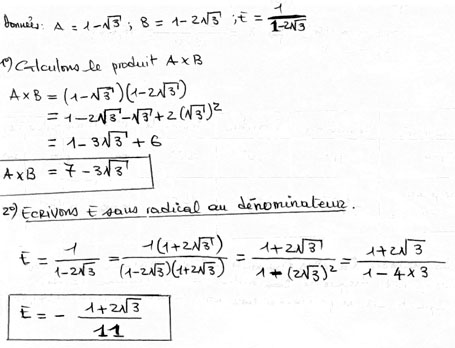 Données: A = 1-√3 ; B = 1-2√3 ; E = 1/(1-2√3)
1°) Calculons le produit A×B
A×B = (1-√3)(1-2√3)
= 1-2√3-√3+2(√3)²
= 1-3√3+6
A×B = 7-3√3
2°) Ecrivons E sans radical au dénominateur.
E = 1/(1-2√3) = 1(1+2√3)/((1-2√3)(1+2√3)) = (1+2√3)/(1-(2√3)²) = (1+2√3)/(1-4×3)
E = - (1+2√3)/11